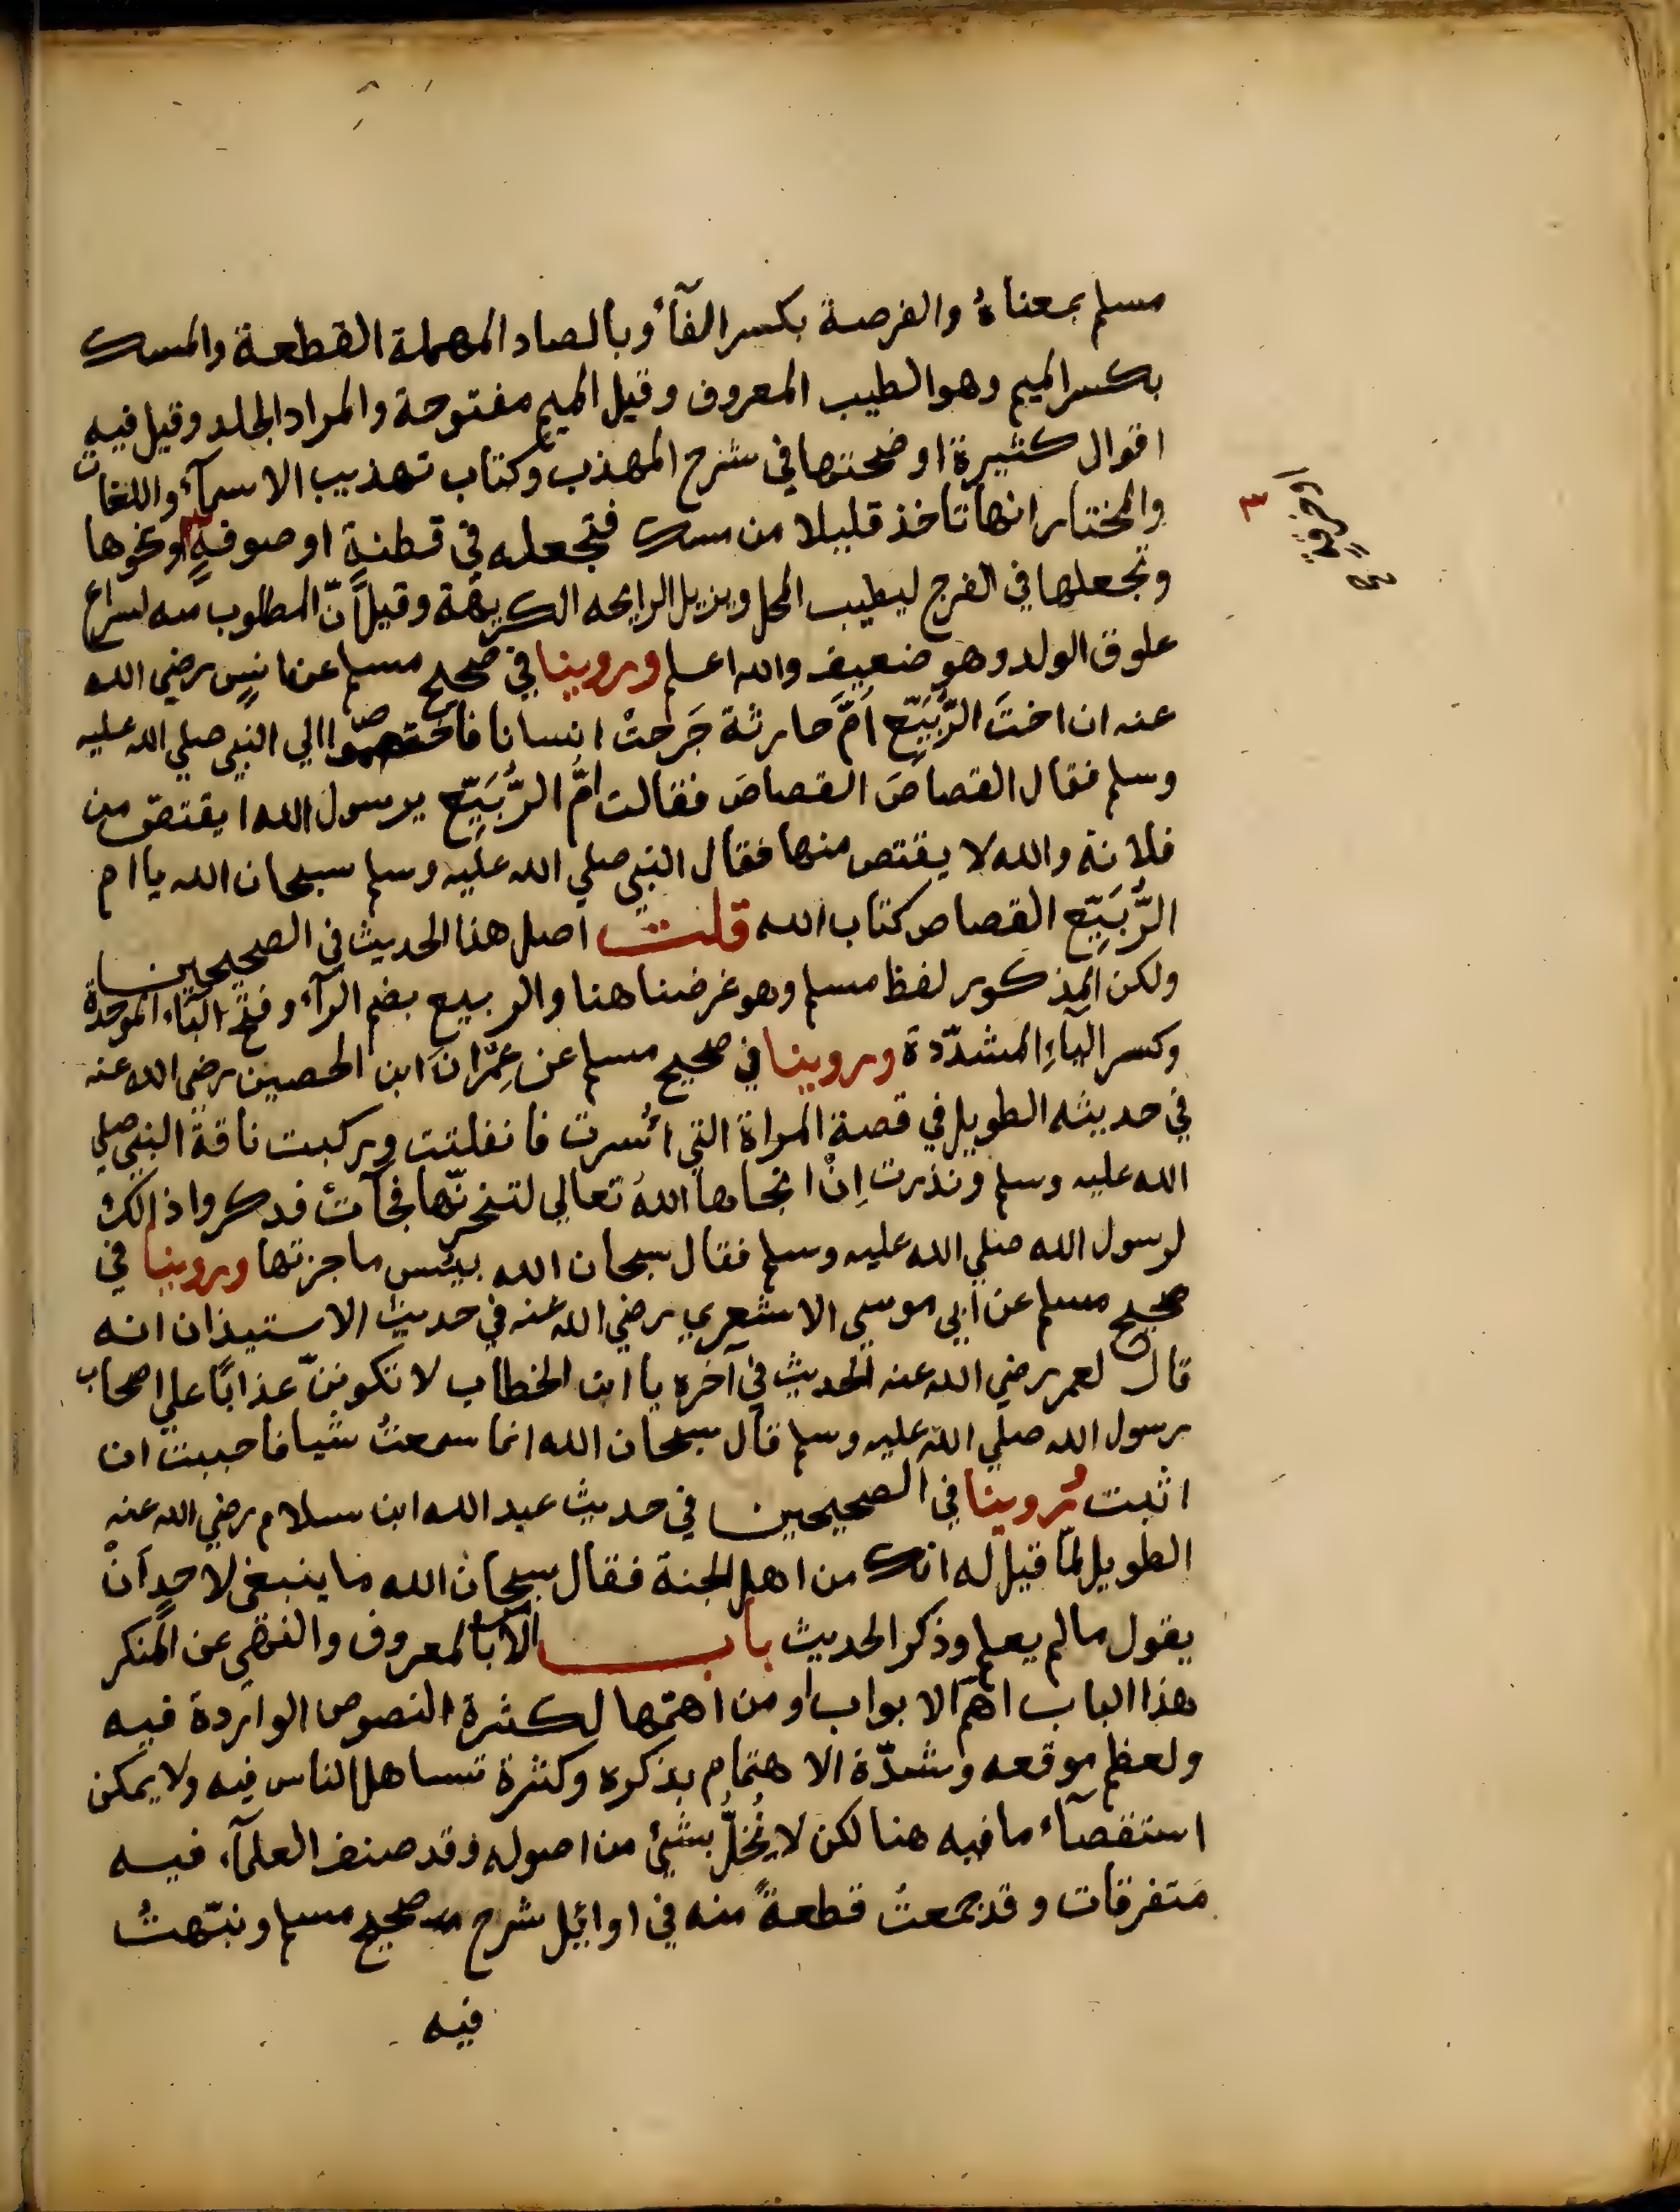 مسلم بمعناهُ والفرصة بكسر الفآء وبالصاد المهملة القطعة والمسك
بكسر الميم وهو الطيب المعروف وقيل الميم مفتوحة والمراد الجلد وقيل فيه
اقوال كثيرة اوضحتها في شرح المهذب وكتاب تهذيب الاسمآء واللغات
والمختار انها تاخذ قليلا من مسك فتجعله في قطنةٍ او صوفةٍ او نحوها
٣
او خرقةٍ
وتجعلها في الفرج ليطيب المحل ويزيل الرايحه الكريهة وقيل انّ المطلوب منه اسراع
علوق الولد وهو ضعيف والله اعلم وروينا في صحيح مسلم عن انسٍ رضي الله
عنه ان اختَ الرُّبَيِّع اُمَّ حارثة جَرحتْ انسانا فاختصموا الي النبي صلي الله عليه
وسلم فقال القصاصَ القصاصَ فقالت امُّ الرُّبَيِّع يرسول الله ايقتصّ من
فلانة والله لا يقتص منها فقال النبي صلي الله عليه وسلم سبحان الله يا ام
الرُّبَيِّع القصاص كتاب الله قلت اصل هذا الحديث في الصحيحين
ولكن المذكور لفظ مسلم وهو غرضنا هنا والربيع بضم الرآء وفتح البآء الموحدة
وكسر اليآءِ المشدّدة وروينا في صحيح مسلم عن عِمْرانَ ابن الحصين رضي الله عنه
في حديثه الطويل في قصة المراة التي اُسرت فانفلتت وركبت ناقة النبي صلي
الله عليه وسلم ونذرت اِنْ انجاها اللهُ تعالي لتنحرنّها فجآءتْ فدكروا ذالك
لرسول الله صلي الله عليه وسلم فقال سبحان الله بيئس ما جزتها وروينا في
صحيح مسلم عن ابي موسي الاشعري رضي الله عنه في حديث الاستيذان انه
قال لعمر رضي الله عنه الحديث في آخره يا ابن الخطاب لا تكوننّ عذابًا علي اصحاب
رسول الله صلي الله عليه وسلم قال سبحان الله انما سمعتُ شيا فاحببت ان
اثبت وروينا في الصحيحين في حديث عبد الله ابن سلام رضي الله عنه
الطويل لمّا قيل له انك من اهل الجنة فقال سبحان الله ما ينبغي لاحدٍ انْ
يقول ما لم يعلم وذكر الحديث باب الامر بالمعروف والنهي عن المنكر
هذا الباب اهمّ الابواب او من اهمّها لكثرة النصوص الواردة فيه
ولعظم موقعه وشدّة الاهتمام بذكره وكثرة تساهل الناس فيه ولا يمكن
استقصآء ما فيه هنا لكن لا نُخلُّ بشئ من اصوله وقد صنف العلمآء فيه
متفرقات وقد جمعتُ قطعةً منه في اوائيل شرح صحيح مسلم ونبّهتُ
فيه